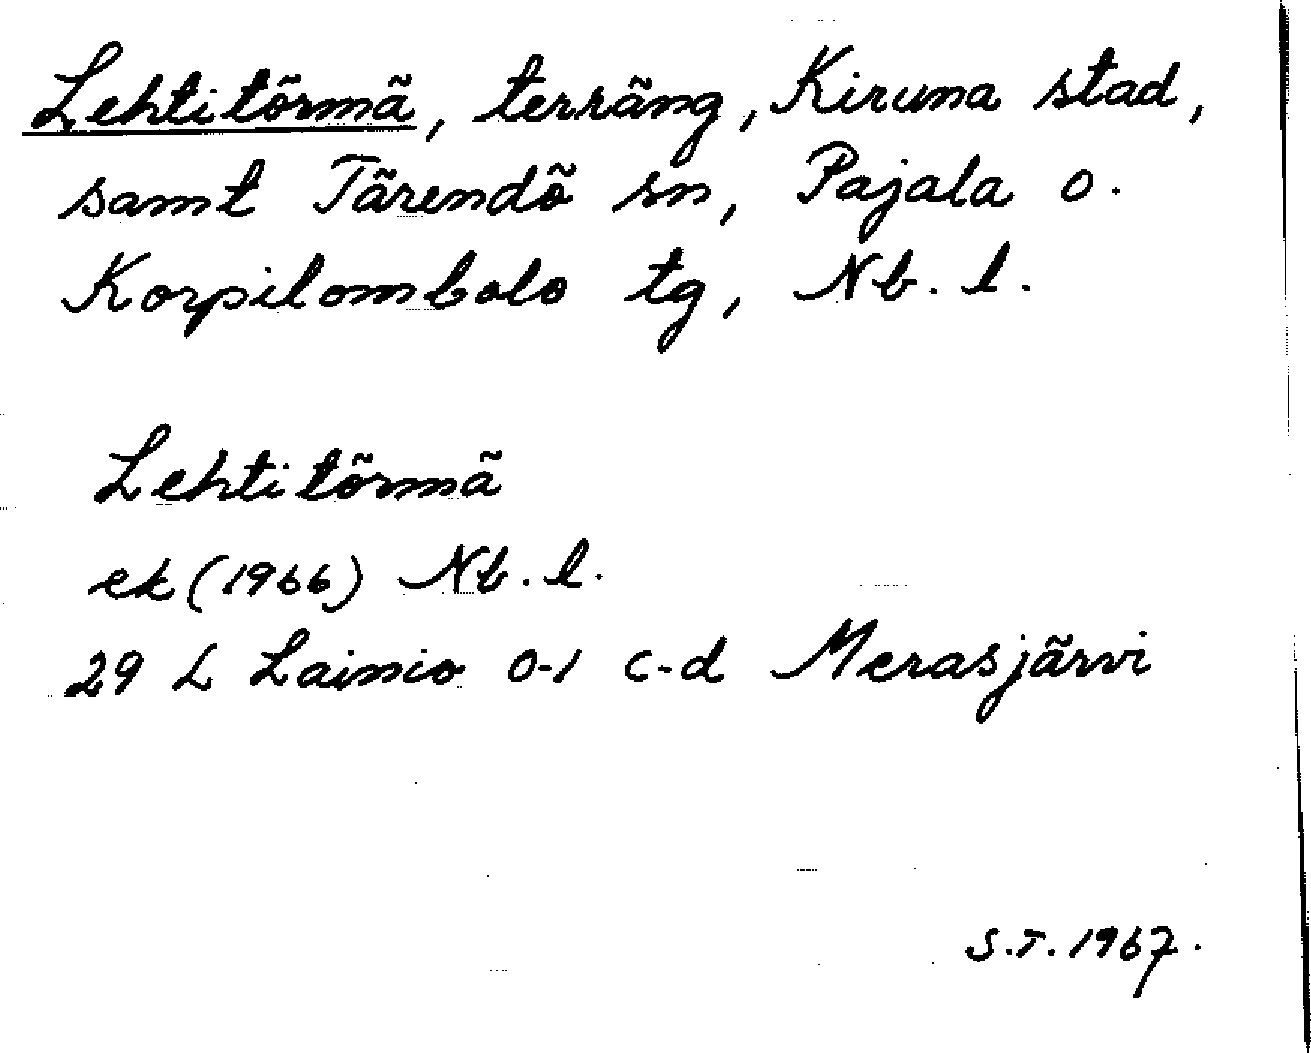 Lehtitörmä, terräng, Kiruna stad,
samt Tärendö sn, Pajala o.
Korpilombolo tg, Nb. l.
Lehtitörmä
ek (1966) Nb. l.
29 L Lainio 0-1 c-d Merasjärvi
S.T. 1967.